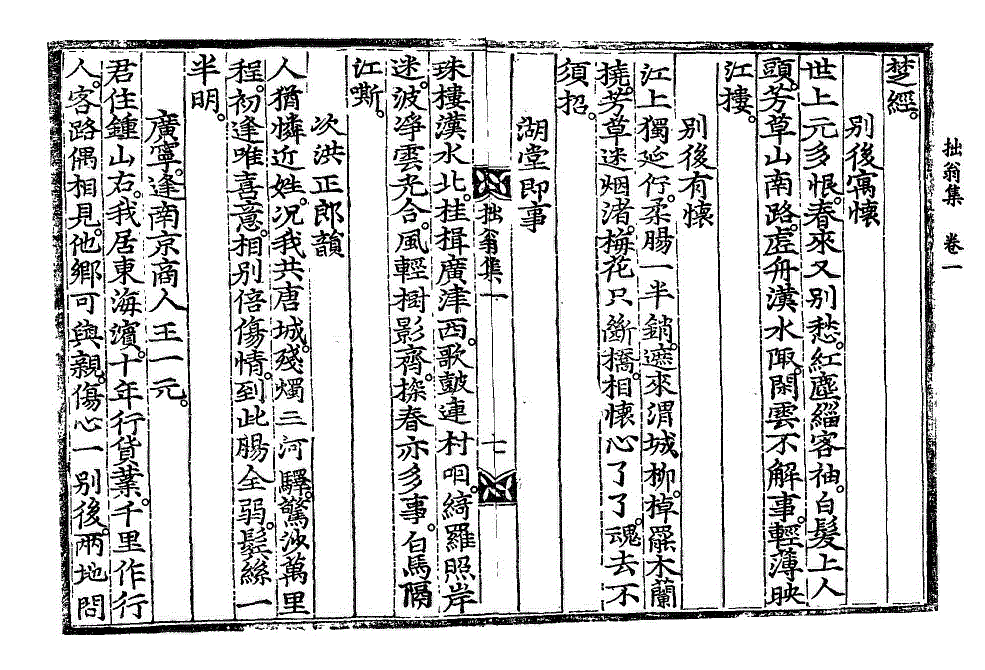 拙翁集 卷一
楚經。
別後寓懷
世上元多恨。春來又別愁。紅塵緇客袖。白髮上人
頭。芳草山南路。虛舟漢水陬。閑雲不解事。輕薄映
江樓。
別後有懷
江上獨延佇。柔腸一半銷。遮來渭城柳。棹罷木蘭
撓。芳草迷烟渚。梅花只斷橋。相懷心了了。魂去不
須招。
湖堂即事
拙翁集一 七
珠樓漢水北。桂楫廣津西。歌皷連村咽。綺羅照岸
迷。波凈雲光合。風輕樹影齊。探春亦多事。白馬隔
江嘶。
次洪正郎韻
人猶憐近姓。况我共唐城。殘燭三河驛。驚沙萬里
程。初逢唯喜意。相別倍傷情。到此腸全弱。髩絲一
半明。
廣寧。逢南京商人王一元。
君住鍾山右。我居東海濱。十年行貨業。千里作行
人。客路偶相見。他鄉可與親。傷心一別後。兩地問